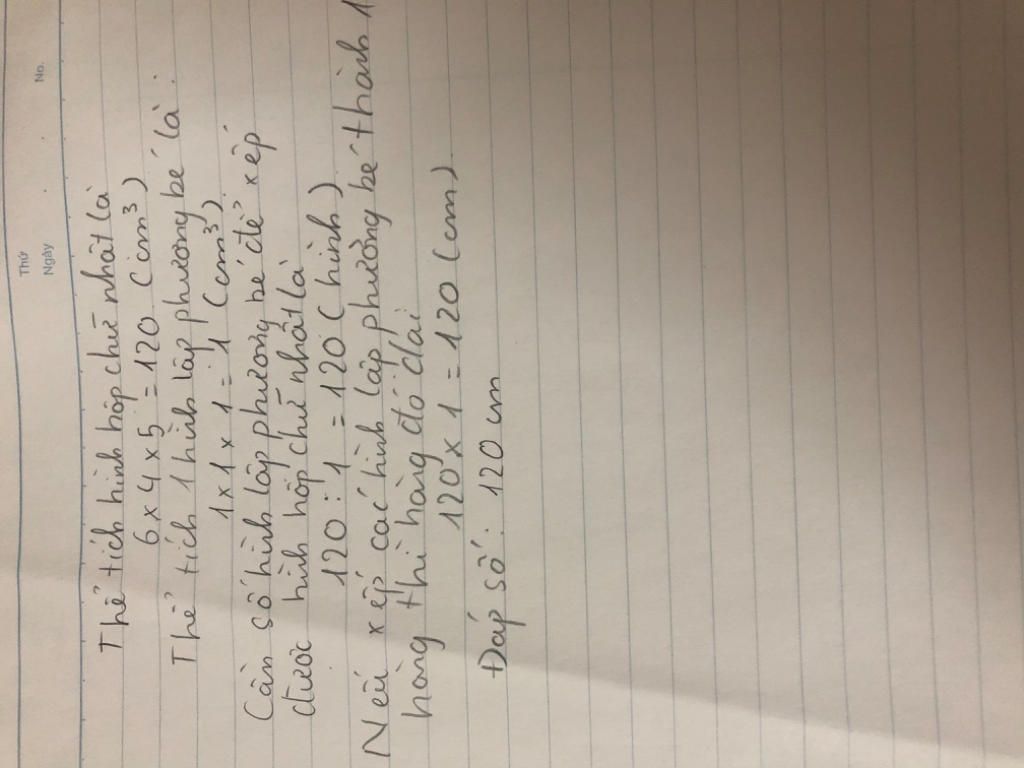 Thứ
Ngày
No.
Thể tích hình hộp chữ nhật là
6 x 4 x 5 = 120 (cm³)
Thể tích 1 hình lập phương bé là :
1 x 1 x 1 = 1 (cm³)
Cần số hình lập phương bé để xếp
được hình hộp chữ nhất là
120 : 1 = 120 (hình)
Nếu xếp các hình lập phương bé thành 1
hàng thì hàng đó dài
120 x 1 = 120 (cm)
Đáp số : 120 cm